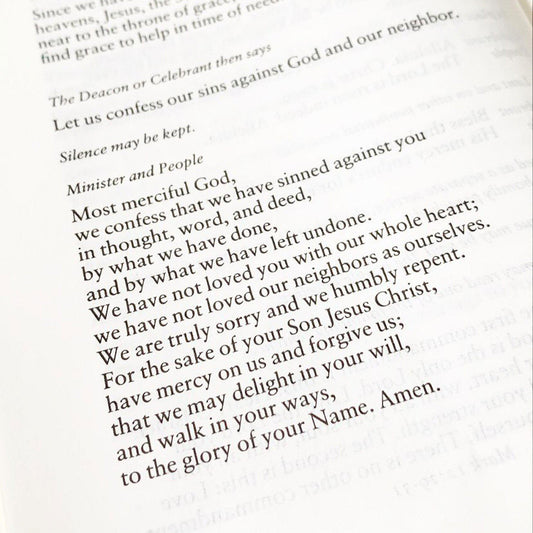 Since we have
heavens, Jesus, the S
near to the throne of grace,
find grace to help in time of need
The Deacon or Celebrant then says
Let us confess our sins against God and our neighbor.
Silence may be kept.
Minister and People
Most merciful God,
we confess that we have sinned against you
in thought, word, and deed,
by what we have done,
and by what we have left undone.
We have not loved you with our whole heart;
we have not loved our neighbors as ourselves.
We are truly sorry and we humbly repent.
For the sake of your Son Jesus Christ,
have mercy on us and forgive us;
that we may delight in your will,
and walk in your ways,
to the glory of your Name. Amen.